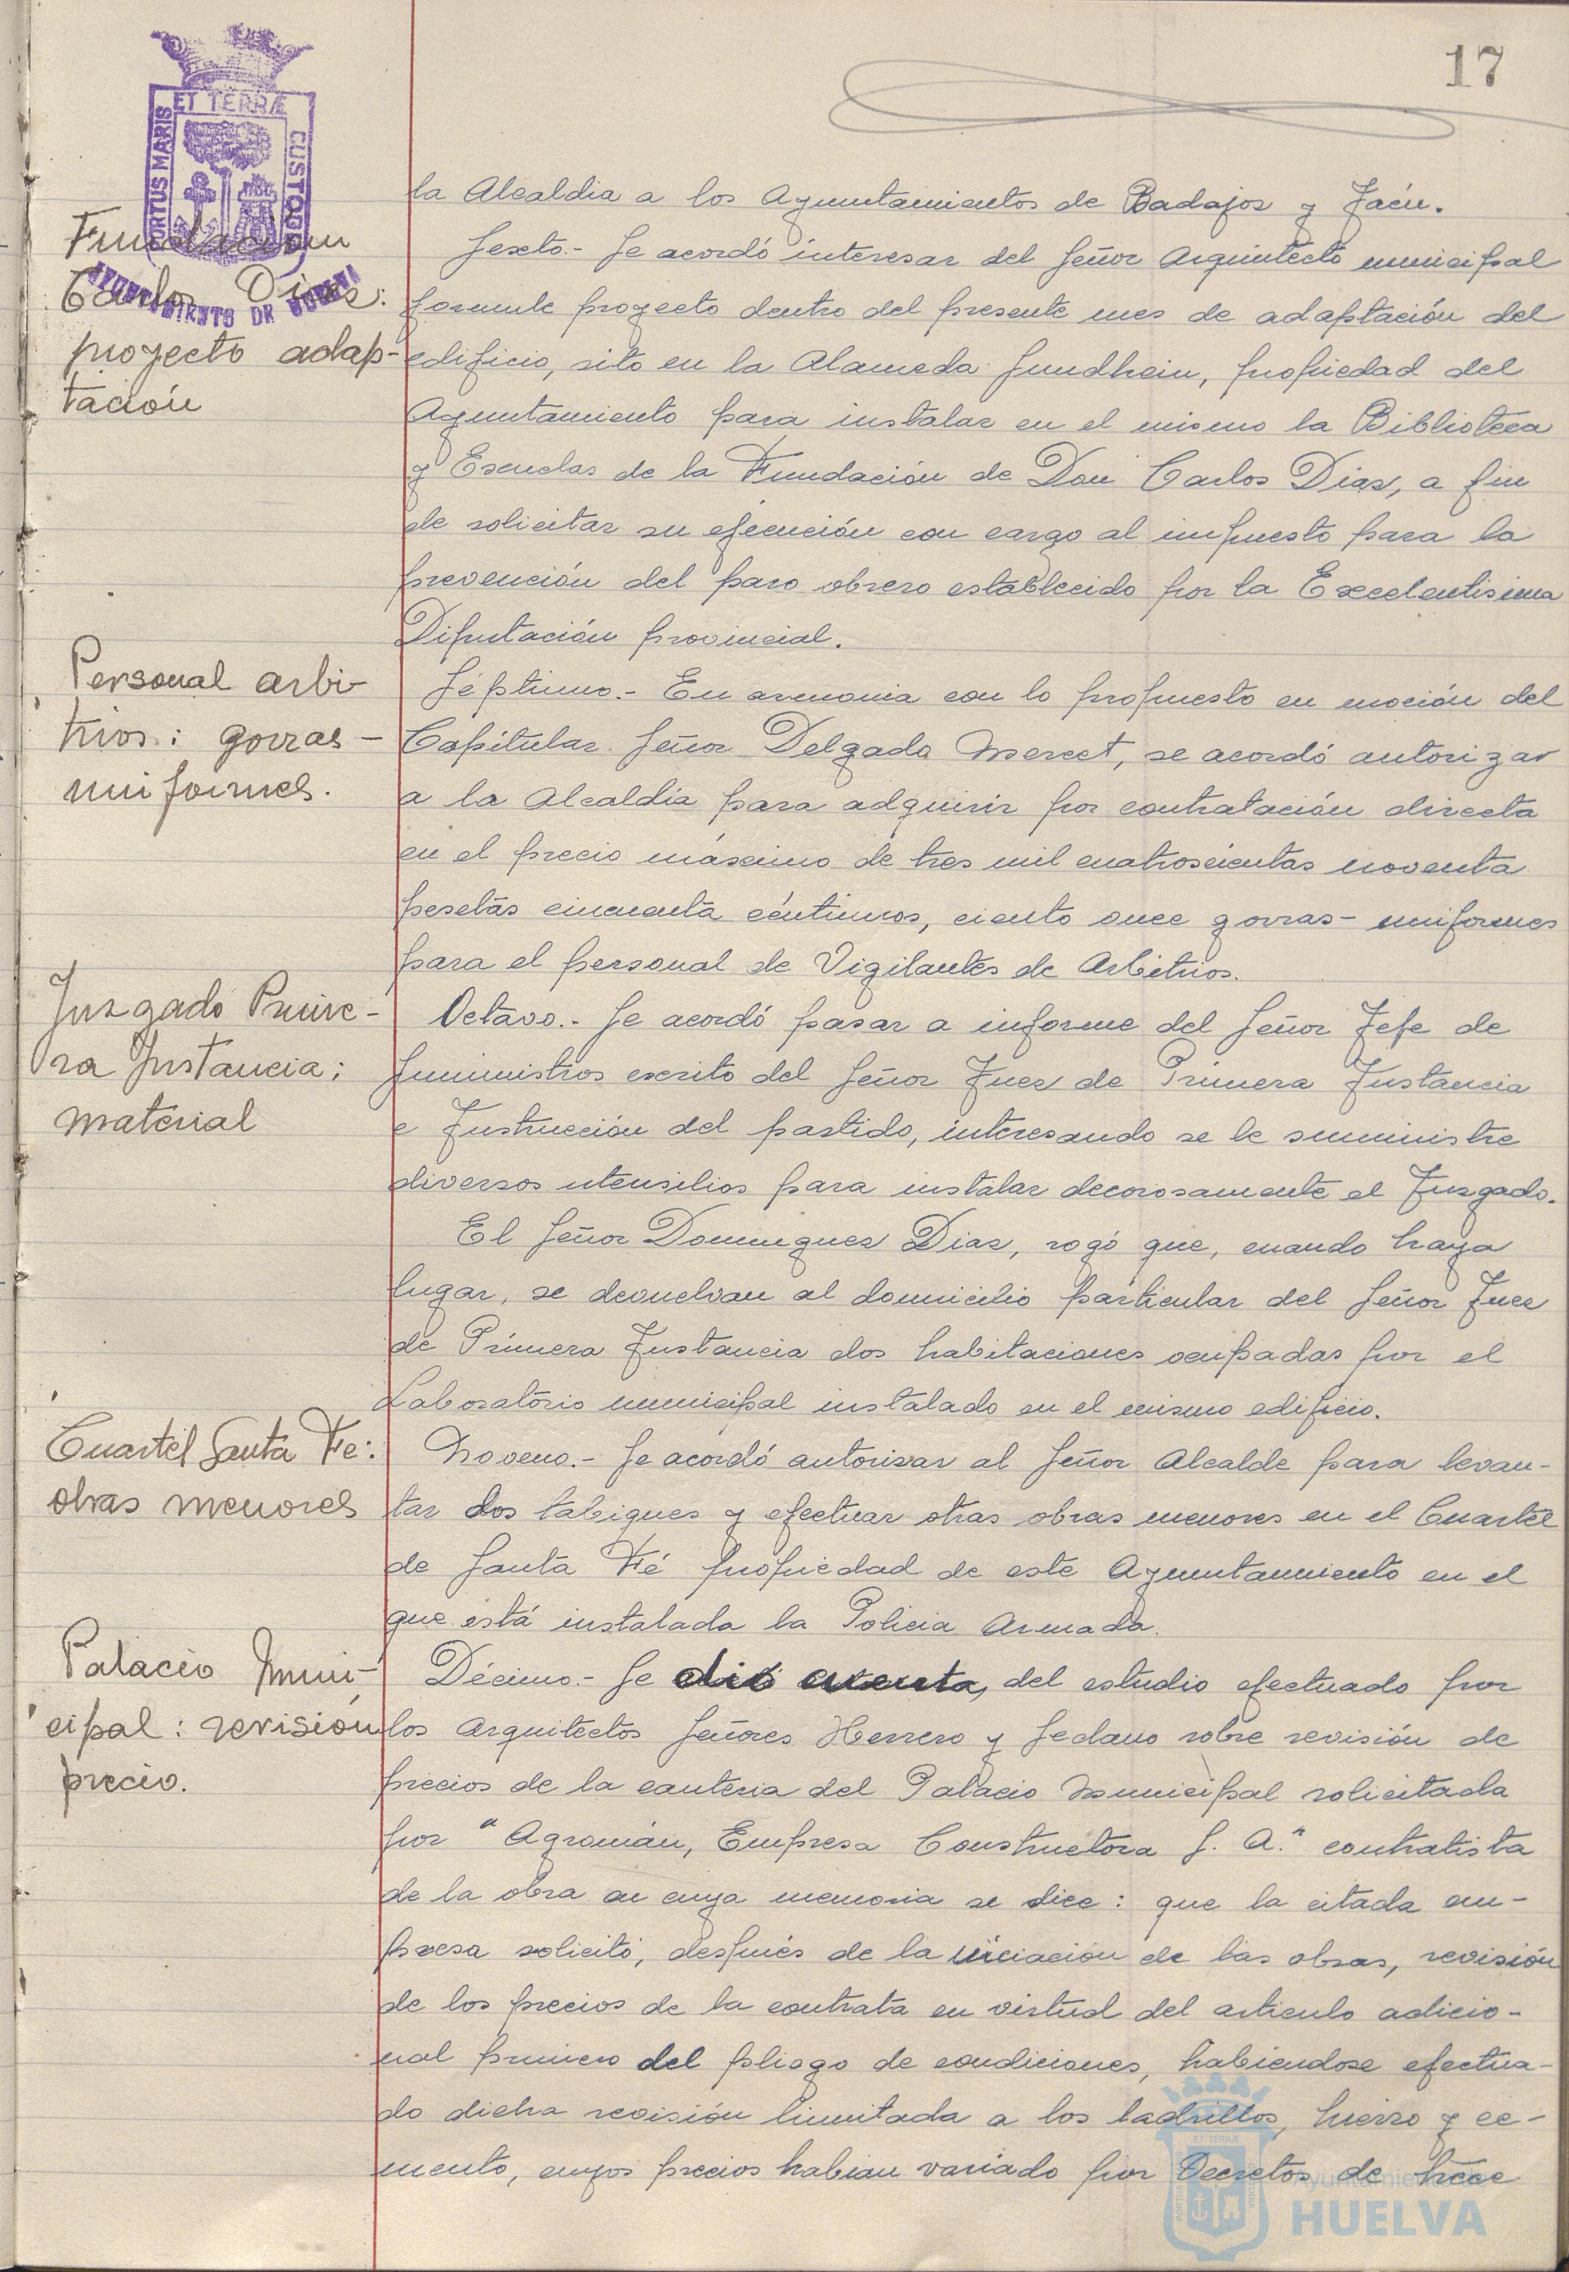 17
ET TERRÆ
PORTUS MARIS
CUSTODIA
AYUNTAMIENTO DE HUELVA
la Alcaldia a los Ayuntamientos de Badajoz y Jaén.
Fundación
Carlos Diaz:
proyecto adap-
tación
Sexto.- Se acordó interesar del Señor Arquitecto municipal
formule proyecto dentro del presente mes de adaptación del
edificio, sito en la Alameda Sundhein, propiedad del
Ayuntamiento para instalar en el mismo la Biblioteca
y Escuelas de la Fundación de Don Carlos Diaz, a fin
de solicitar su ejecución con cargo al impuesto para la
prevención del paro obrero establecido por la Excelentisima
Diputación provincial.
Personal arbi-
trios: gorras-
uniformes.
Séptimo.- En armonia con lo propuesto en moción del
Capitular Señor Delgado Mercet, se acordó autorizar
a la Alcaldía para adquirir por contratación directa
en el precio máximo de tres mil cuatroscientas noventa
pesetas cincuenta céntimos, ciento once gorras-uniformes
para el personal de Vigilantes de Arbitrios.
Juzgado Prime-
ra Instancia;
material
Octavo.- Se acordó pasar a informe del Señor Jefe de
Suministros escrito del Señor Juez de Primera Instancia
e Instrucción del partido, interesando se le suministre
diversos utensilios para instalar decorosamente el Juzgado.
El Señor Dominguez Diaz, rogó que, cuando haya
lugar, se devuelvan al domicilio particular del Señor Juez
de Primera Instancia dos habitaciones ocupadas por el
Laboratorio municipal instalado en el mismo edificio.
Cuartel Santa Fe:
obras menores
Noveno.- Se acordó autorizar al Señor Alcalde para levan-
tar dos tabiques y efectuar otras obras menores en el Cuartel
de Santa Fé propiedad de este Ayuntamiento en el
que está instalada la Policia Armada.
Palacio Muni-
cipal: revisión
precio.
Décimo.- Se dió cuenta, del estudio efectuado por
los Arquitectos Señores Herrero y Sedano sobre revisión de
precios de la canteria del Palacio Municipal solicitada
por "Agroman, Empresa Constructora S. A." contratista
de la obra en cuya memoria se dice: que la citada em-
presa solicitó, después de la iniciación de las obras, revisión
de los precios de la contrata en virtud del articulo adicio-
nal primero del pliego de condiciones, habiendose efectua-
do dicha revisión limitada a los ladrillos, hierro y ce-
mento, cuyos precios habian variado por Decretos de trece
Ayuntamiento de
HUELVA